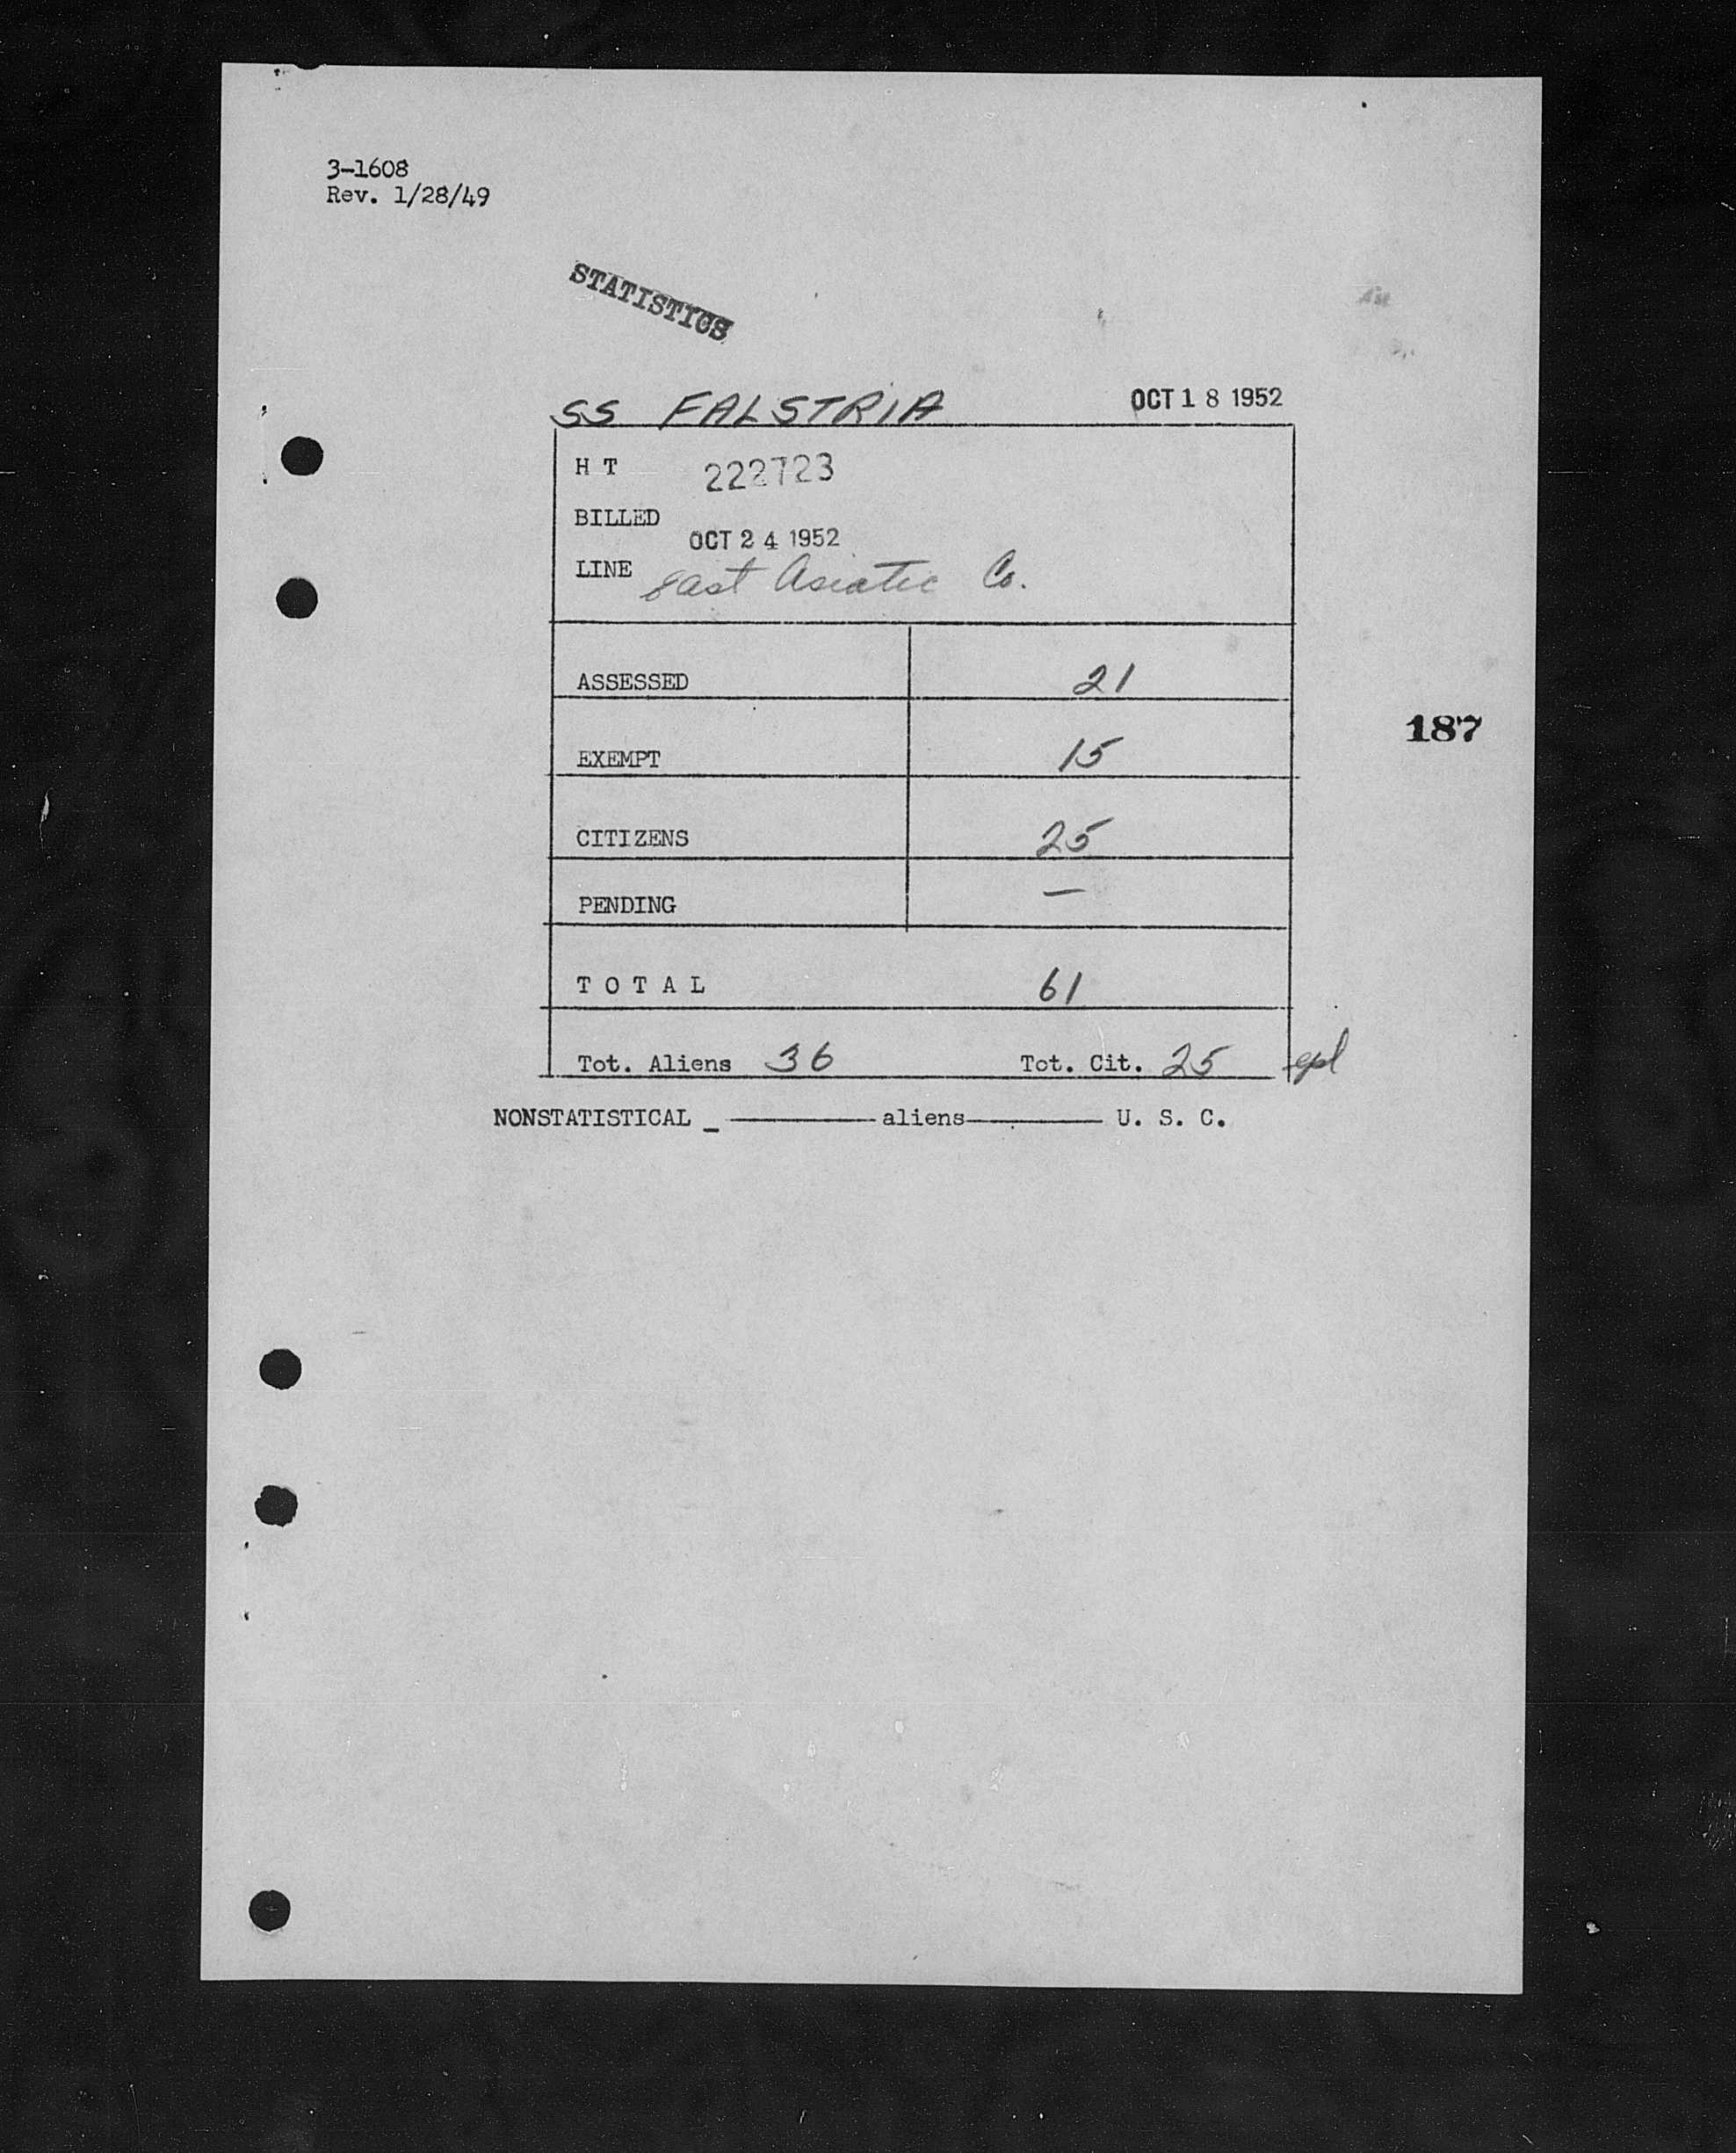 3-1608
Rev. 1/28/49
STATISTICS
SS FALSTRIA OCT 18 1952
H T 222723
BILLED
OCT 24 1952
LINE East Asiatic Co.
ASSESSED 21
187
EXEMPT 15
CITIZENS 25
PENDING —
T O T A L 61
Tot. Aliens 36 Tot. Cit. 25
NONSTATISTICAL _ ——— aliens ——— U. S. C.